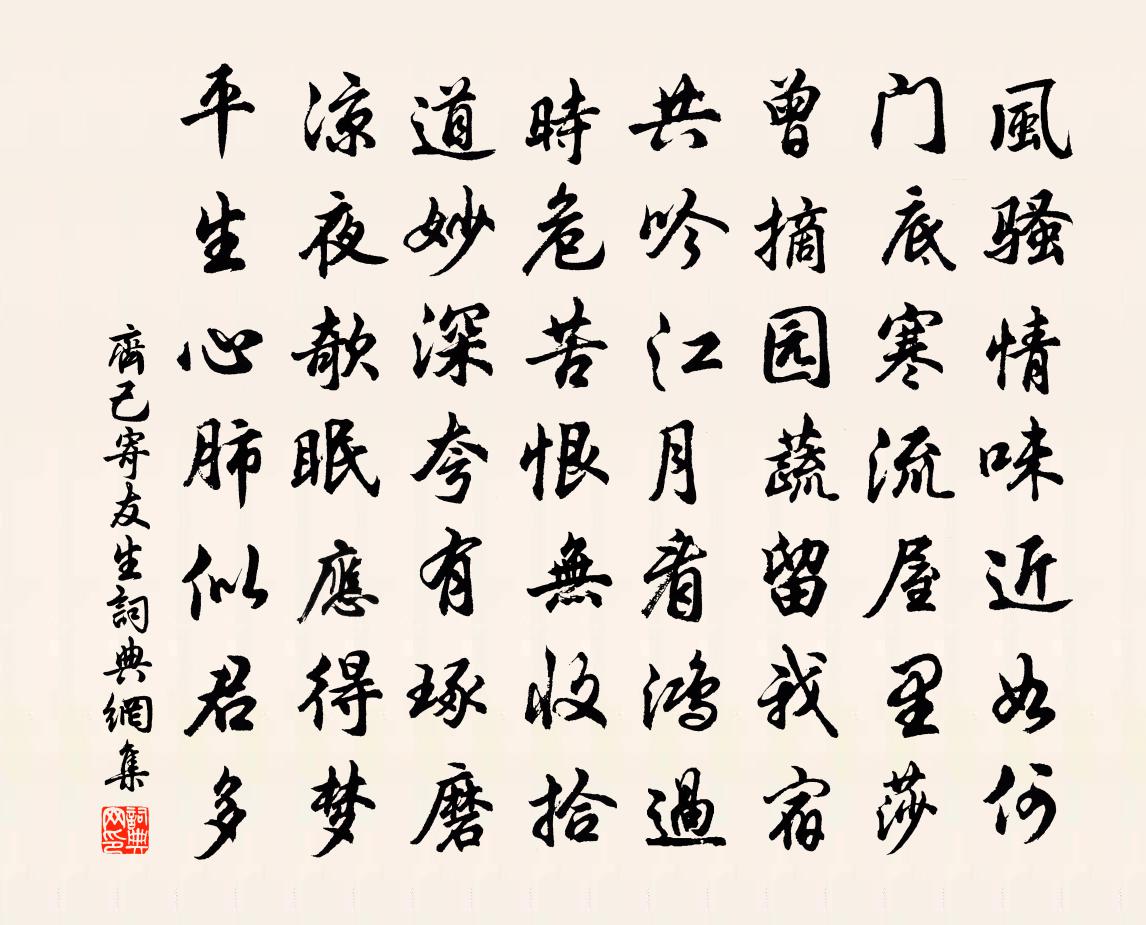 風騷情味近如何
门底寒流屋里莎
曾摘园蔬留我宿
共吟江月看鸿過
時危苦恨無收拾
道妙深夸有琢磨
凉夜欹眠應得梦
平生心肺似君多
齊己寄友生詞典網集
詞典网印